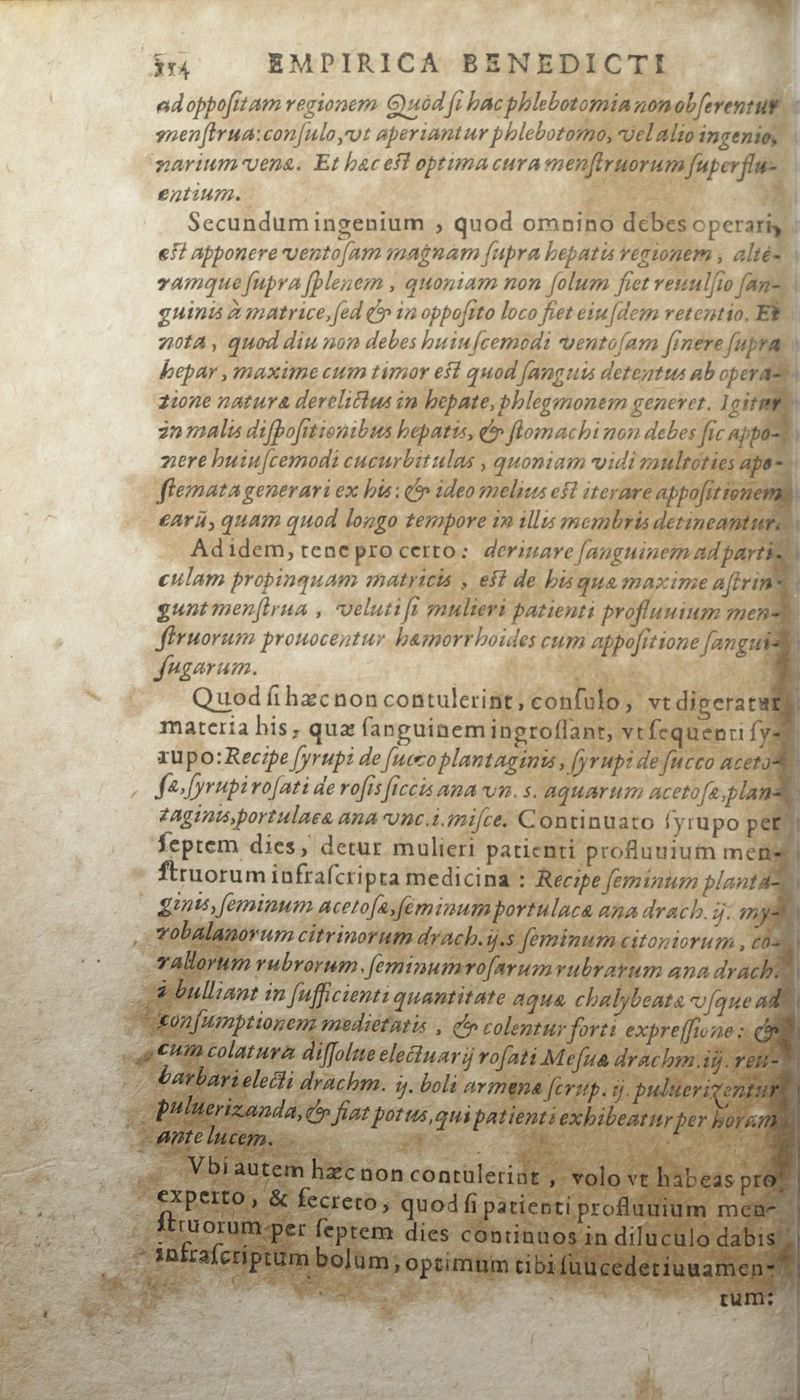 114 EMPIRICA BENEDICTI
ad oppoſitam regionem Quòd ſi hac phlebotomia non obſerentur
menſtrua: conſulo, vt aperiantur phlebotomo, vel alio ingenio,
narium venæ. Et hæc eſt optima cura menſtruorum ſuperflu-
entium.
Secundum ingenium, quod omnino debes operari,
eſt apponere ventoſam magnam ſupra hepatis regionem, alte-
ramque ſupra ſplenem, quoniam non ſolum fiet reuulſio ſan-
guinis à matrice, ſed & in oppoſito loco fiet eiuſdem retentio. Et
nota, quod diu non debes huiuſcemodi ventoſam ſinere ſupra
hepar, maxime cum timor eſt quod ſanguis detentus ab opera-
tione naturæ derelictus in hepate, phlegmonem generet. Igitur
in malis diſpoſitionibus hepatis, & ſtomachi non debes ſic appo-
nere huiuſcemodi cucurbitulas, quoniam vidi multoties apo-
ſtemata generari ex his: & ideo melius eſt iterare appoſitionem
earū, quam quod longo tempore in illis membris detineantur.
Ad idem, tene pro certo: deriuare ſanguinem ad parti-
culam propinquam matricis, eſt de his quæ maxime aſtrin-
gunt menſtrua, veluti ſi mulieri patienti profluuium men-
ſtruorum prouocentur hæmorrhoides cum appoſitione ſangui-
ſugarum.
Quod ſi hæc non contulerint, conſulo, vt digeratur
materia his, quæ ſanguinem ingroſſant, vt ſequenti ſy-
rupo: Recipe ſyrupi de ſucco plantaginis, ſyrupi de ſucco aceto-
ſæ, ſyrupi roſati de roſis ſiccis ana vn. s. aquarum acetoſæ, plan-
taginis, portulacæ ana vnc. i. miſce. Continuato ſyrupo per
ſeptem dies, detur mulieri patienti profluuium men-
ſtruorum infraſcripta medicina : Recipe ſeminum planta-
ginis, ſeminum acetoſæ, ſeminum portulacæ ana drach. ij. my-
robalanorum citrinorum drach. ij.s ſeminum citoniorum, co-
rallorum rubrorum, ſeminum roſarum rubrarum ana drach.
i bulliant in ſufficienti quantitate aquæ chalybeatæ vſque ad
conſumptionem medietatis, & colentur forti expreſſione: &
cum colatura diſſolue electuarij roſati Meſuæ drachm. iij. reu-
barbari electi drachm. ij. boli armenæ ſcrup. ij. puluerizentur
puluerizanda, & fiat potus, qui patienti exhibeatur per horam
ante lucem.
Vbi autem hæc non contulerint, volo vt habeas pro
experto, & ſecreto, quod ſi patienti profluuium men-
ſtruorum per ſeptem dies continuos in diluculo dabis
infraſcriptum bolum, optimum tibi ſuucedet iuuamen-
tum: